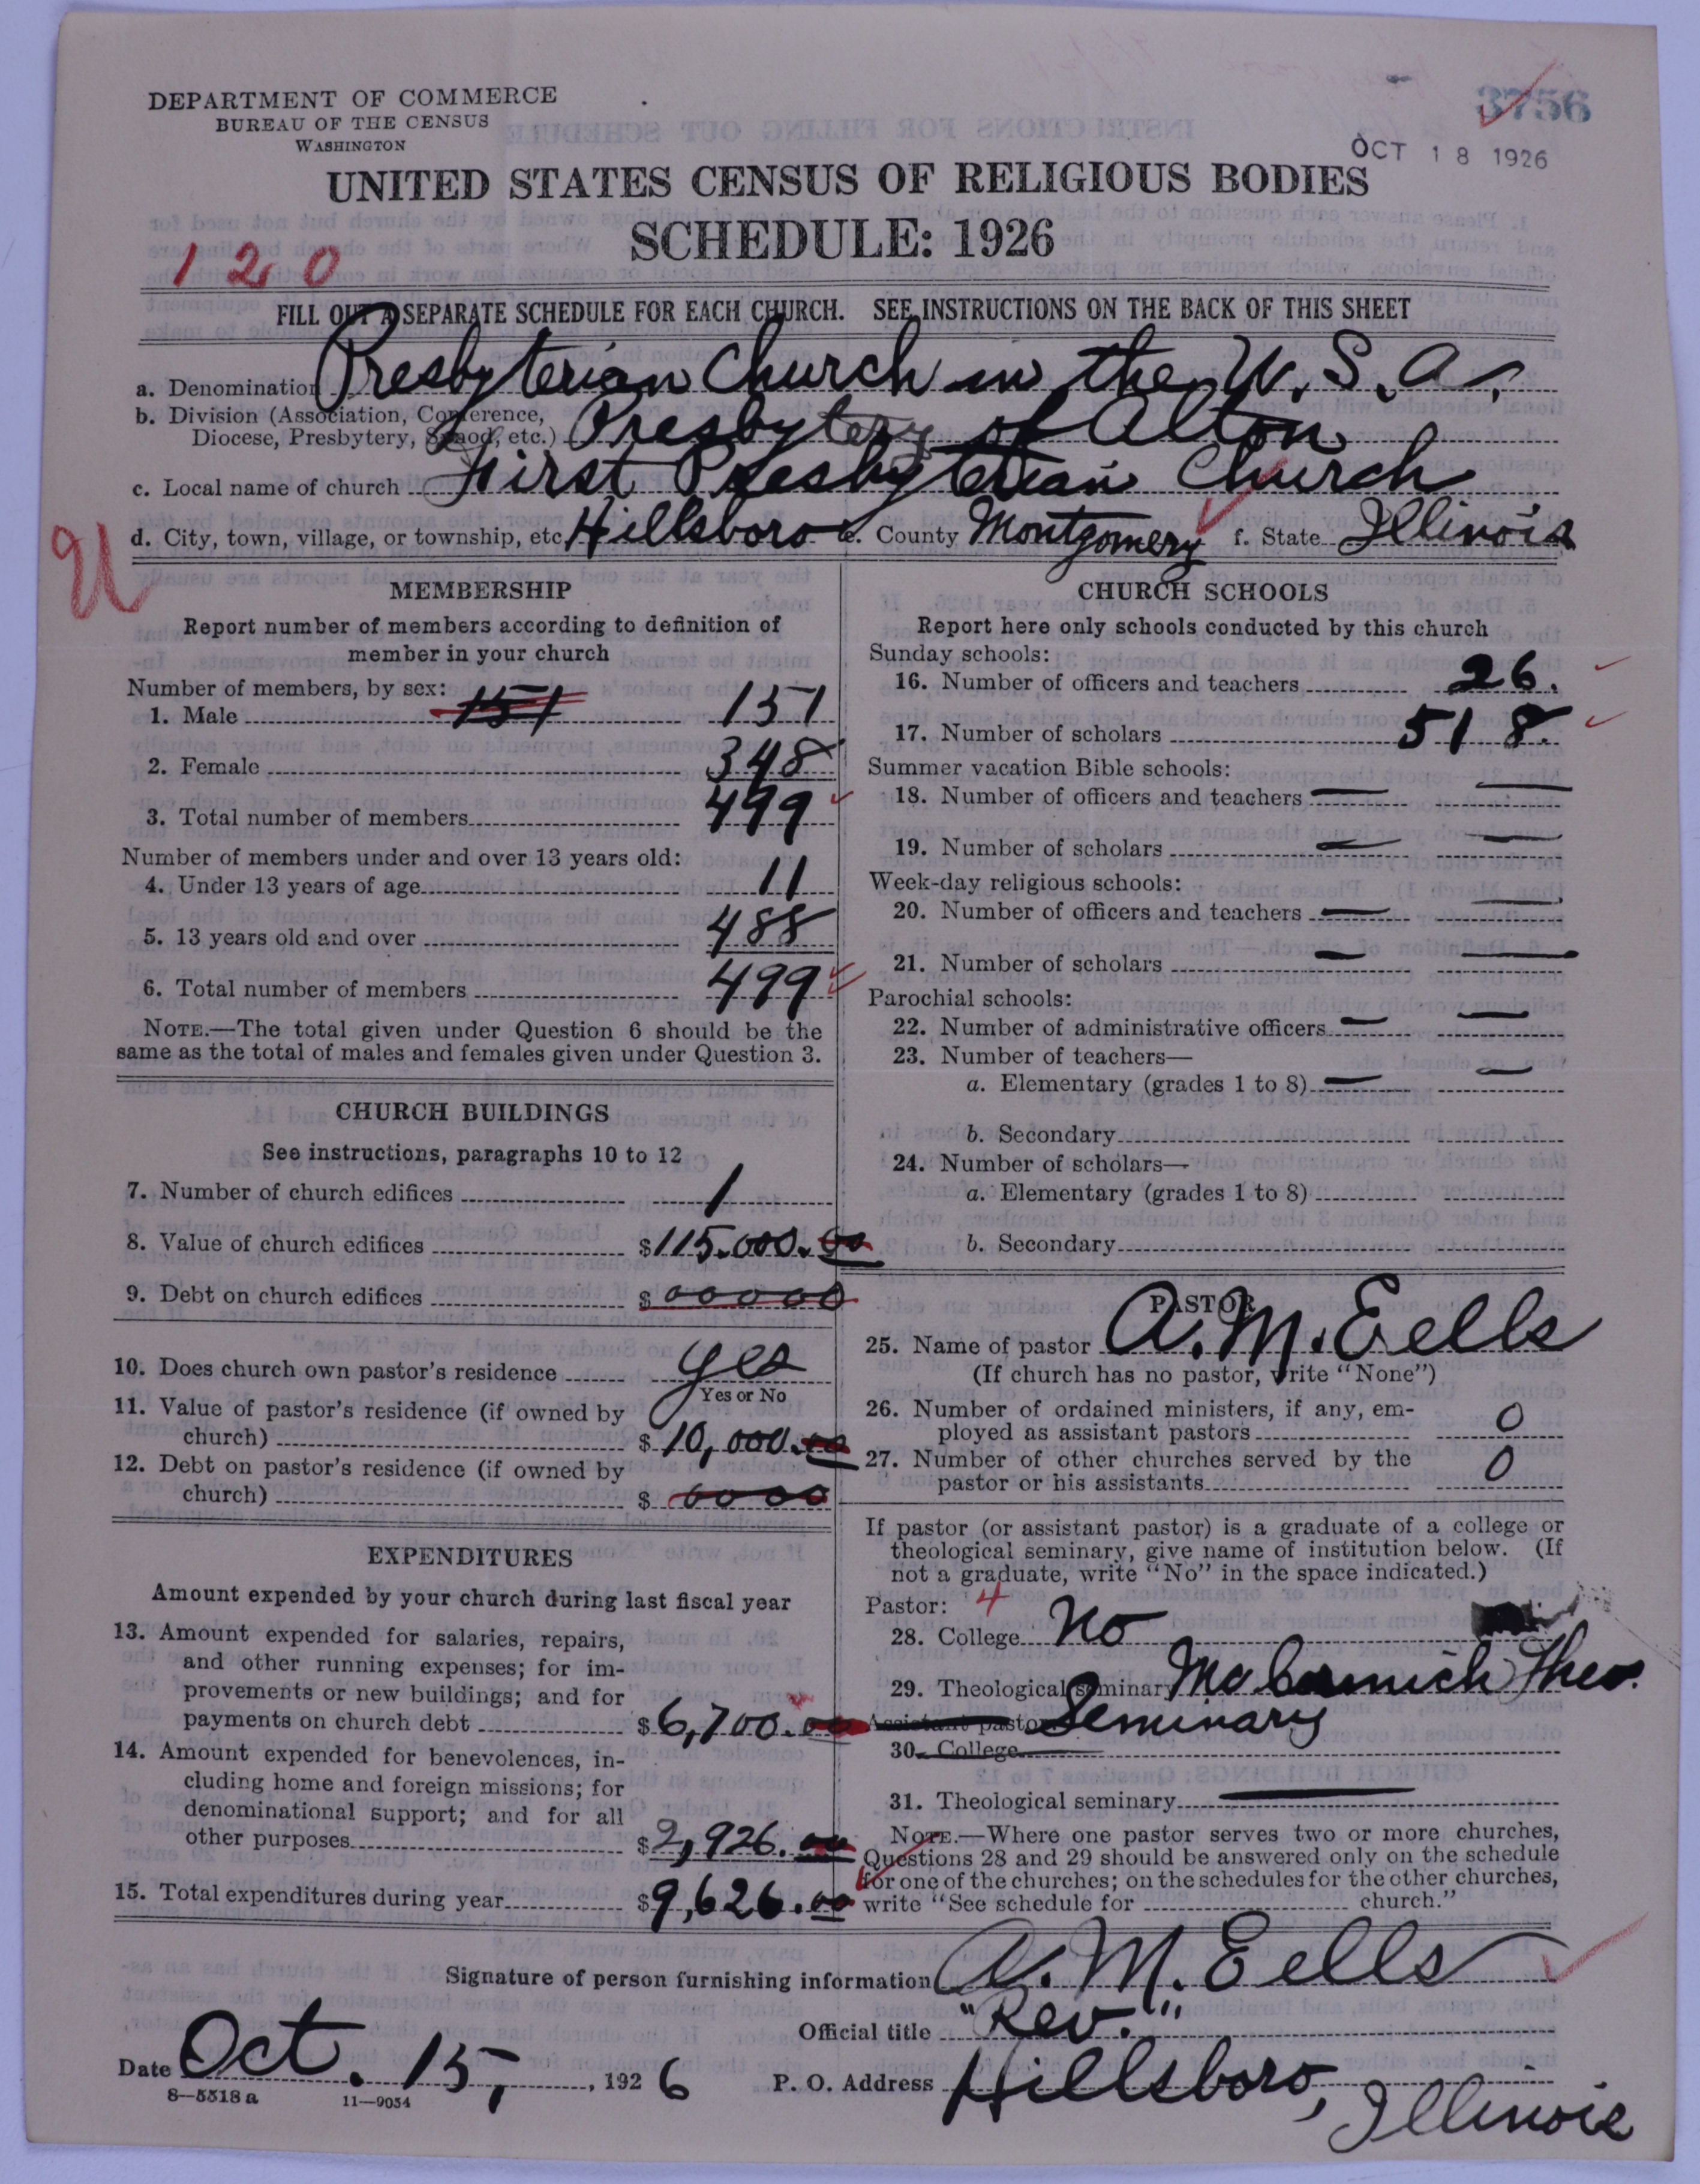 3756
DEPARTMENT OF COMMERCE
BUREAU OF THE CENSUS
WASHINGTON
OCT 18 1926
UNITED STATES CENSUS OF RELIGIOUS BODIES
SCHEDULE: 1926
120
FILL OUT A SEPARATE SCHEDULE FOR EACH CHURCH. SEE INSTRUCTIONS ON THE BACK OF THIS SHEET
a. Denomination Presbyterian Church in the U.S.A.
b. Division (Association, Conference,
Diocese, Presbytery, Synod, etc.) Presbytery of Alton
c. Local name of church First Presbyterian Church
d. City, town, village, or township, etc. Hillsboro e. County Montgomery f. State Illinois
U
MEMBERSHIP
Report number of members according to definition of
member in your church
Number of members, by sex:
1. Male 151 151
2. Female 348
3. Total number of members 499
Number of members under and over 13 years old:
4. Under 13 years of age 11
5. 13 years old and over 488
6. Total number of members 499
NOTE.—The total given under Question 6 should be the
same as the total of males and females given under Question 3.
CHURCH BUILDINGS
See instructions, paragraphs 10 to 12
7. Number of church edifices 1
8. Value of church edifices $115.000.00
9. Debt on church edifices $00000
10. Does church own pastor's residence yes
Yes or No
11. Value of pastor's residence (if owned by
church) $10,000.00
12. Debt on pastor's residence (if owned by
church) $0000
EXPENDITURES
Amount expended by your church during last fiscal year
13. Amount expended for salaries, repairs,
and other running expenses; for im-
provements or new buildings; and for
payments on church debt $6,700.00
14. Amount expended for benevolences, in-
cluding home and foreign missions; for
denominational support; and for all
other purposes $2,926.00
15. Total expenditures during year $9,626.00
CHURCH SCHOOLS
Report here only schools conducted by this church
Sunday schools:
16. Number of officers and teachers 26.
17. Number of scholars 518.
Summer vacation Bible schools:
18. Number of officers and teachers — —
19. Number of scholars — —
Week-day religious schools:
20. Number of officers and teachers — —
21. Number of scholars — —
Parochial schools:
22. Number of administrative officers — —
23. Number of teachers—
a. Elementary (grades 1 to 8) — —
b. Secondary
24. Number of scholars—
a. Elementary (grades 1 to 8)
b. Secondary
PASTOR
25. Name of pastor A. M. Eells
(If church has no pastor, write "None")
26. Number of ordained ministers, if any, em-
ployed as assistant pastors 0
27. Number of other churches served by the
pastor or his assistants 0
If pastor (or assistant pastor) is a graduate of a college or
theological seminary, give name of institution below. (If
not a graduate, write "No" in the space indicated.)
Pastor: 4
28. College No
29. Theological seminary McCormick Theo.
Assistant pastor Seminary
30. College
31. Theological seminary —
NOTE.—Where one pastor serves two or more churches,
Questions 28 and 29 should be answered only on the schedule
for one of the churches; on the schedules for the other churches,
write "See schedule for church."
Signature of person furnishing information A. M. Eells
Official title "Rev."
Date Oct. 15, 1926 P. O. Address Hillsboro, Illinois
8—5518a 11—9054